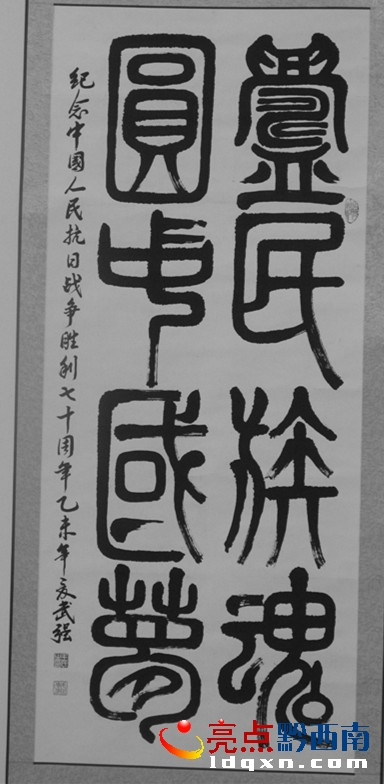 鑄民族魂
圓中國夢
紀念中國人民抗日战争胜利七十周年乙未年夏武强
亮点黔西南
ldqxn.com